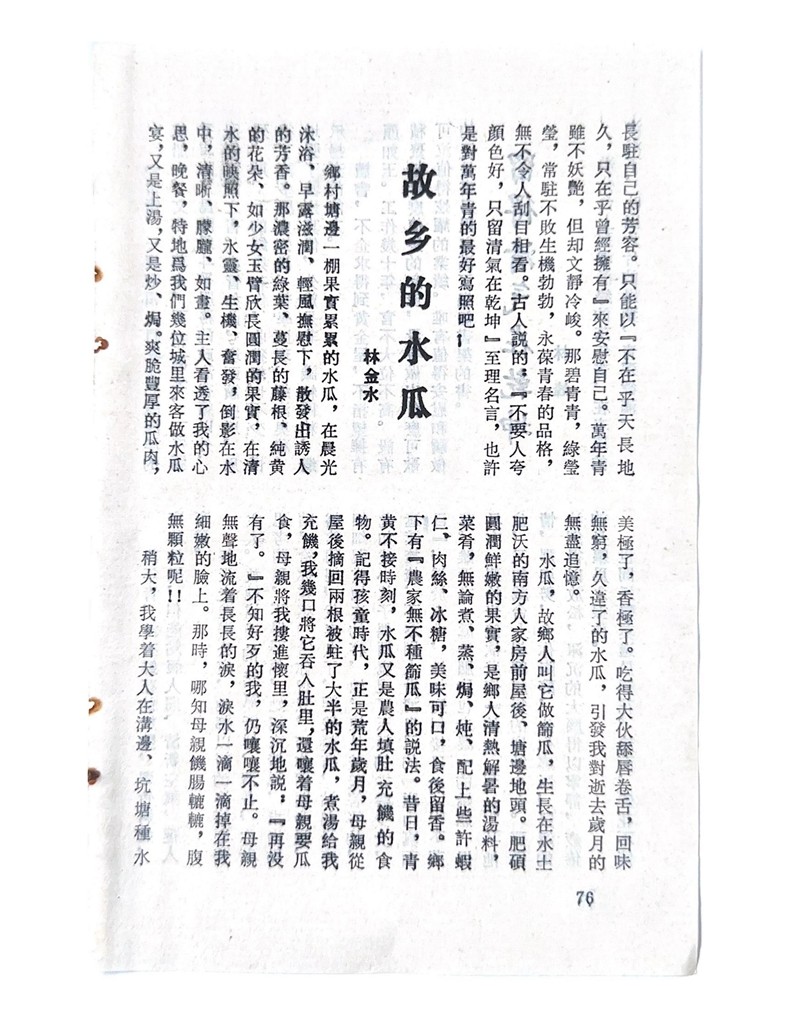 長駐自己的芳容。只能以『不在乎天長地
久，只在乎曾經擁有』來安慰自己。萬年青
雖不妖艷，但却文靜冷峻。那碧青青，綠瑩
瑩，常駐不敗生機勃勃，永葆青春的品格，
無不令人刮目相看。古人説的：『不要人夸
顔色好，只留清氣在乾坤』至理名言，也許
是對萬年青的最好寫照吧！
故乡的水瓜
林金水
鄉村塘邊一棚果實累累的水瓜，在晨光
沐浴、早露滋潤、輕風撫慰下，散發出誘人
的芳香。那濃密的綠葉、蔓長的藤根、純黄
的花朵、如少女玉臂欣長圓潤的果實，在清
水的映照下，水靈、生機、奮發，倒影在水
中，清晰、朦朧、如畫。主人看透了我的心
思，晚餐，特地爲我們幾位城里來客做水瓜
宴，又是上湯，又是炒、焗。爽脆豐厚的瓜肉，
美極了，香極了。吃得大伙舔唇卷舌，回味
無窮，久違了的水瓜，引發我對逝去歲月的
無盡追憶。
水瓜，故鄉人叫它做篩瓜，生長在水土
肥沃的南方人家房前屋後、塘邊地頭。肥碩
圓潤鮮嫩的果實，是鄉人清熱解暑的湯料，
菜肴，無論煮、蒸、焗、炖、配上些許蝦
仁、肉絲、冰糖，美味可口，食後留香。鄉
下有『農家無不種篩瓜』的説法。昔日，青
黄不接時刻，水瓜又是農人填肚充饑的食
物。記得孩童時代，正是荒年歲月，母親從
屋後摘回兩根被蛀了大半的水瓜，煮湯給我
充饑，我幾口將它吞入肚里，還嚷着母親要瓜
食，母親將我摟進懷里，深沉地説：『再没
有了。『不知好歹的我，仍嚷嚷不止。母親
無聲地流着長長的淚，淚水一滴一滴掉在我
細嫩的臉上。那時，哪知母親饑腸轆轆，腹
無顆粒呢！！
稍大，我學着大人在溝邊、坑塘種水
76